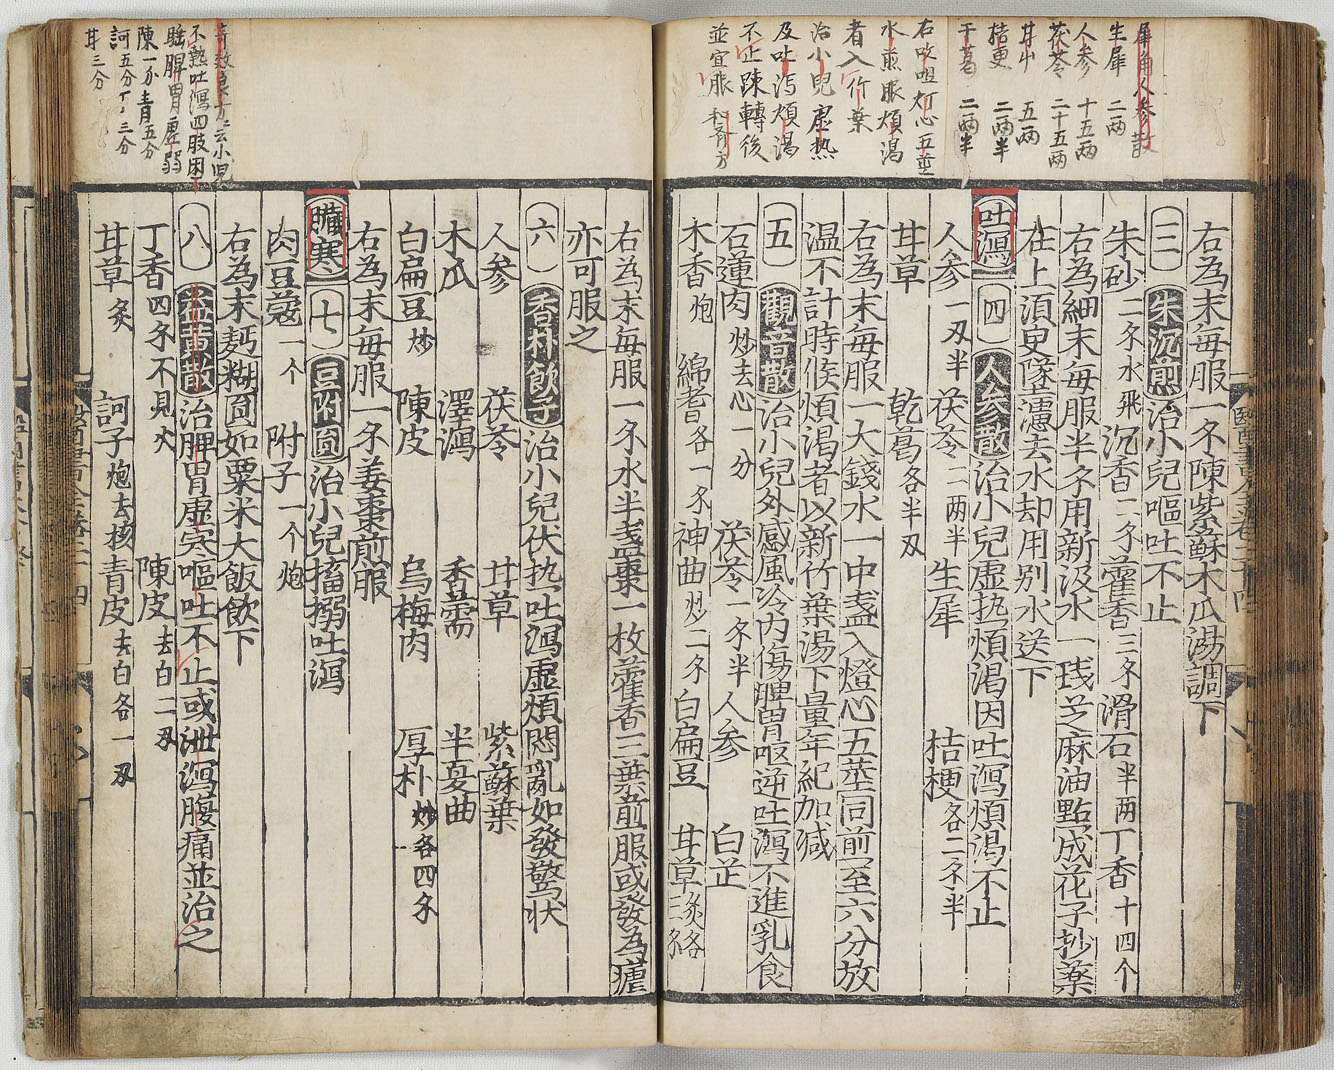 犀角人參散
生犀 二两
人參 十五两
茯苓 二十五两
甘艸 五两
桔更 二两半
干葛 二两半
右㕮咀灯心五莖
水煎服煩渴
者入竹葉
治小兒虛热
及吐泻煩渴
不止踈轉後
並宜服和斉方
右為末每服一錢陳紫蘇木瓜湯調下
三 朱沉煎 治小兒嘔吐不止
朱砂二錢水飛 沉香二錢 藿香三錢 滑石半两 丁香十四个
右為細末每服半錢用新汲水一琖芝麻油點成花子抄藥
在上須臾墜濾去水却用別水送下
吐瀉 四 人參散 治小兒虛热煩渴因吐瀉煩渴不止
人參一刄半 茯苓二两半 生犀 桔梗各二錢半
甘草 乾葛各半刄
右為末每服一大錢水一中盞入燈心五莖同煎至六分放
温不計時候煩渴者以新竹葉湯下量年紀加减
五 觀音散 治小兒外感風冷内傷脾胃呕逆吐瀉不進乳食
石蓮肉炒去心一分 茯苓一錢半 人參 白芷
木香炮 綿耆各一錢 神曲炒二錢 白扁豆 甘草
右為末每服一錢水半盞棗一枚藿香三葉煎服或發為癨
亦可服之
六 香朴飲子 治小兒伏热吐瀉虛煩悶亂如發驚状
人參 茯苓 甘草 紫蘇葉
木瓜 澤瀉 香薷 半夏曲
白扁豆炒 陳皮 烏梅肉 厚朴炒各四錢
右為末每服一錢姜棗煎服
臟寒 七 豆附圓 治小兒搐搦吐瀉
肉豆蔻一个 附子一个炮
右為末麪糊圓如粟米大飯飲下
八 益黄散 治脾胃虛寒嘔吐不止或泄瀉腹痛並治之
丁香四錢不見火 陳皮去白二刄
甘草炙 訶子炮去核 青皮去白各一刄
不熟吐瀉四肢困
脾胃虛弱
陳一分青五分
訶五分丁三分
甘三分